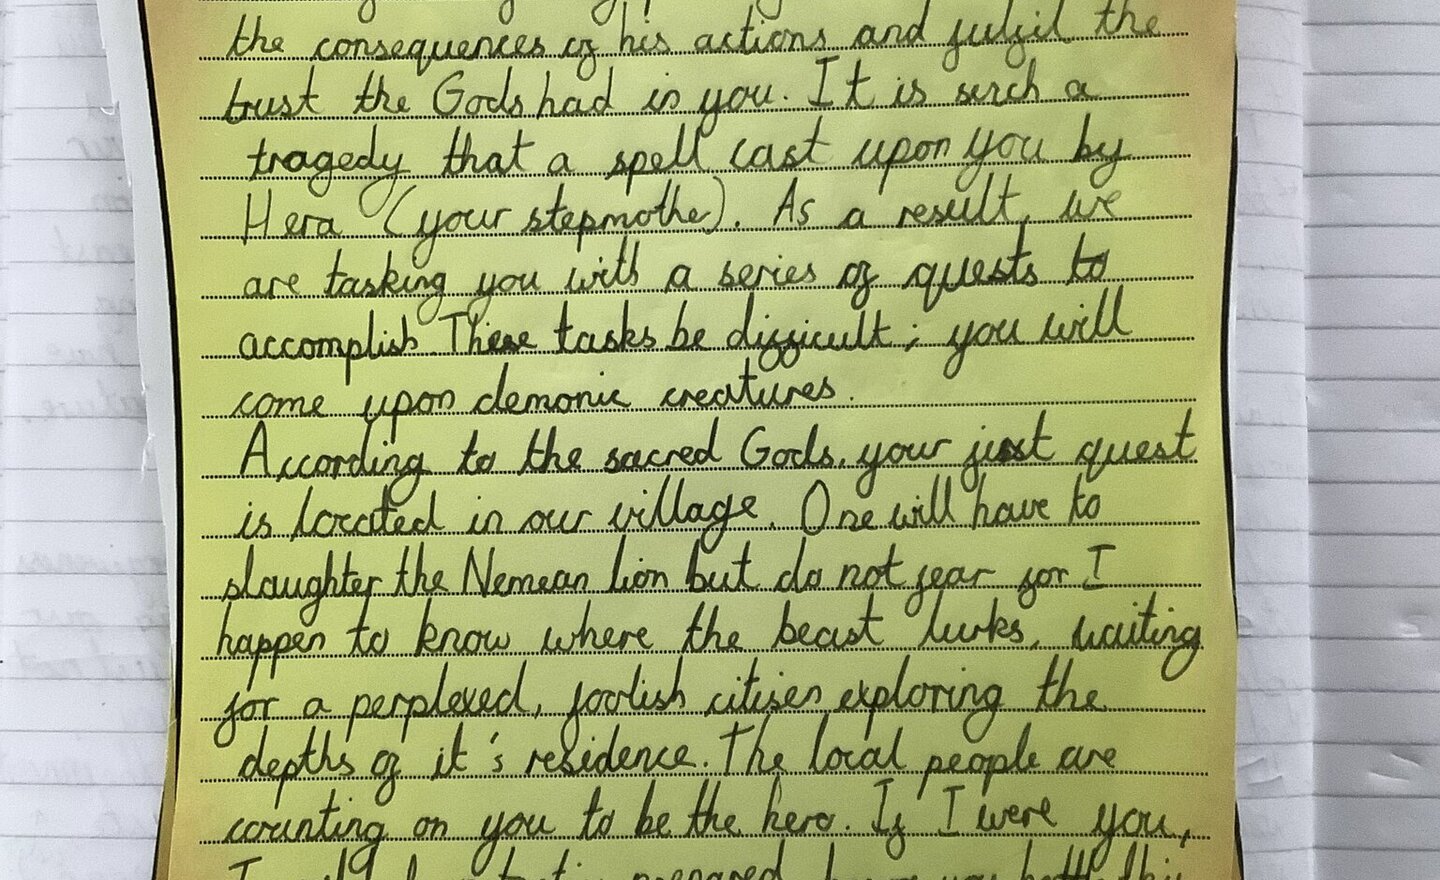 the consequences of his actions and fulfil the
trust the Gods had in you. It is such a
tragedy that a spell cast upon you by
Hera (your stepmothe). As a result, we
are tasking you with a series of quests to
accomplish These tasks be difficult; you will
come upon demonic creatures.
According to the sacred Gods, your first quest
is located in our village. One will have to
slaughter the Nemean lion but do not fear for I
happen to know where the beast lurks, waiting
for a perplexed, foolish citisen exploring the
depths of it's residence. The local people are
counting on you to be the hero. If I were you,
I prepared this